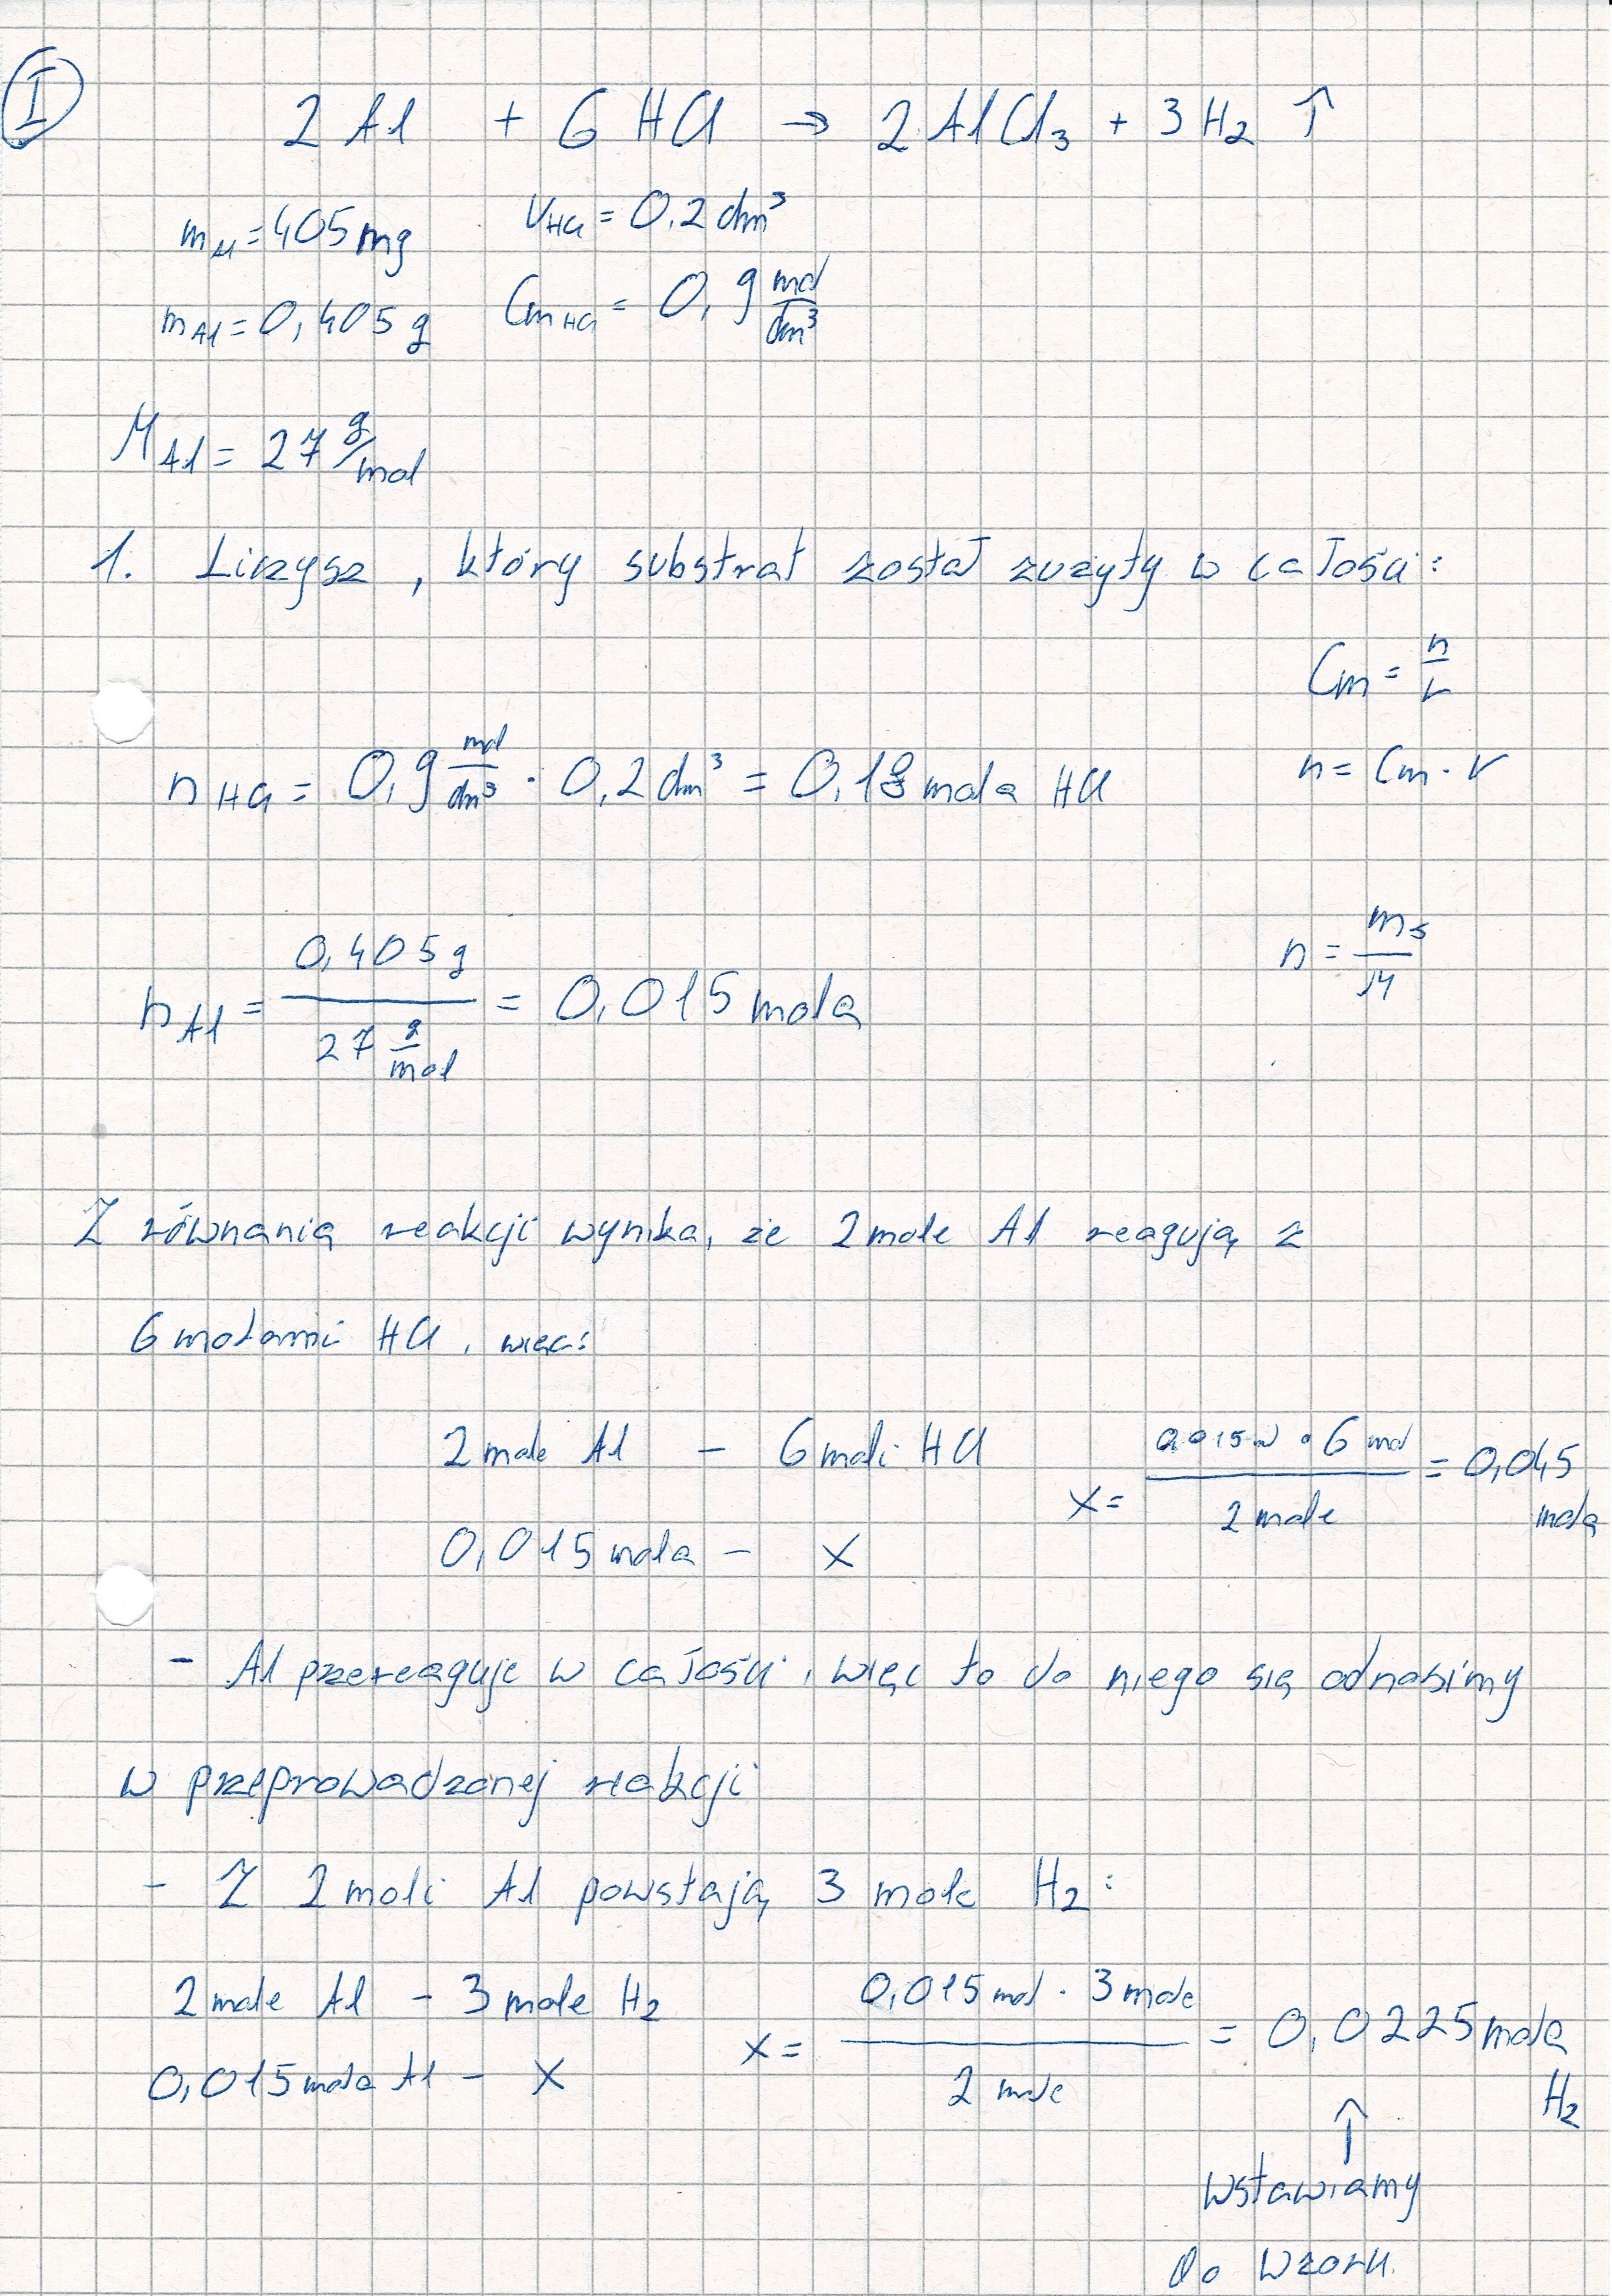 I
2 Al + 6 HCl → 2 AlCl₃ + 3 H₂ ↑
m Al = 405 mg V HCl = 0.2 dm³
m Al = 0,405 g Cm HCl = 0,9 mol/dm³
M Al = 27 g/mol
1. Liczysz, który substrat został zużyty w całości:
Cm = n/V
n HCl = 0,9 mol/dm³ · 0,2 dm³ = 0,18 mola HCl n = Cm · V
n Al = 0,405 g / 27 g/mol = 0,015 mola n = ms/M
Z równania reakcji wynika, że 2 mole Al reagują z
6 molami HCl, więc:
2 mole Al - 6 moli HCl x = 0,015 m · 6 mol / 2 mole = 0,045 mola
0,015 mola - x
- Al przereaguje w całości, więc to do niego się odnosimy
w przeprowadzonej reakcji
- Z 2 moli Al powstają 3 mole H₂:
2 mole Al - 3 mole H₂ x = 0,015 mol · 3 mole / 2 mole = 0,0225 mola H₂
0,015 mola Al - x
↑
wstawiamy
do wzoru.